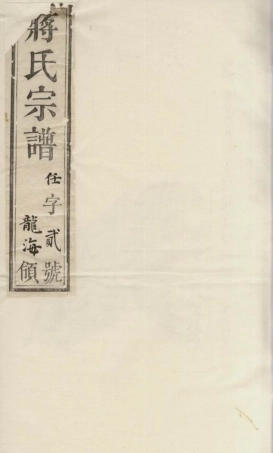 蔣氏宗譜
任字貳號
龍海領